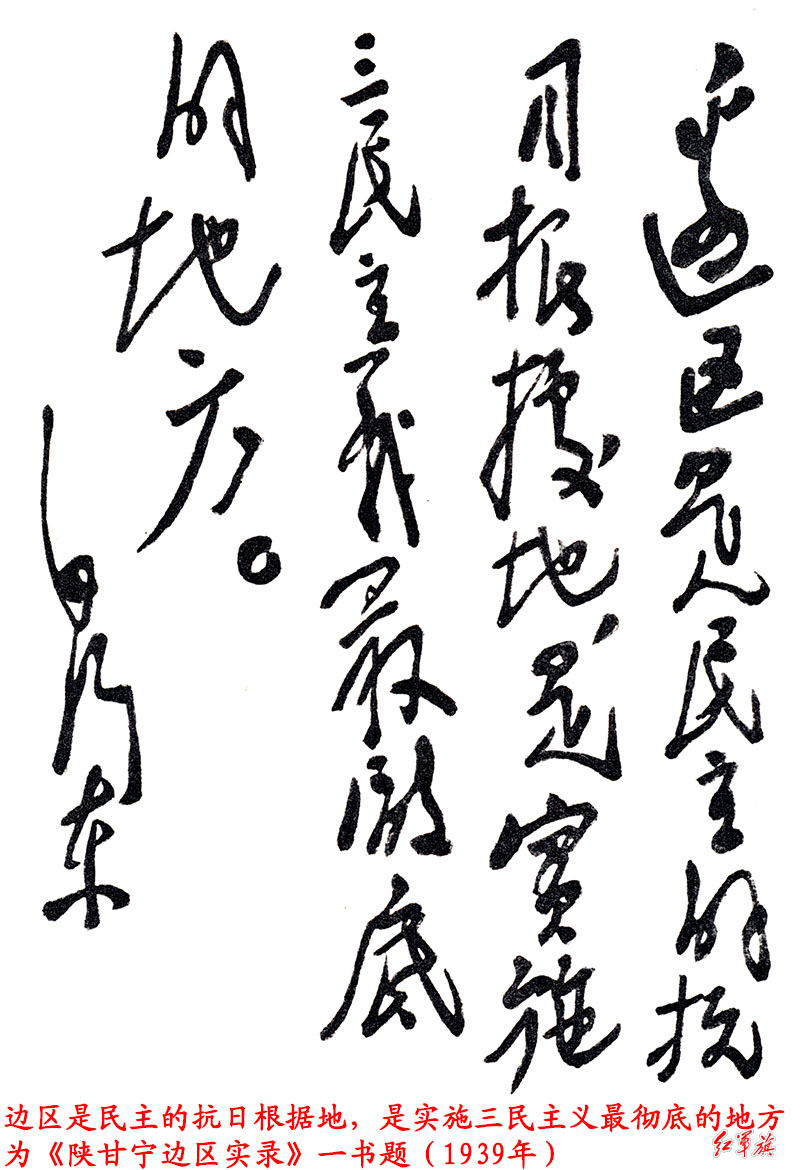 边区是民主的抗
日根據地是實施
三民主義最澈底
的地方。
毛泽东
边区是民主的抗日根据地，是实施三民主义最彻底的地方
为《陕甘宁边区实录》一书题（1939年）
红军旗